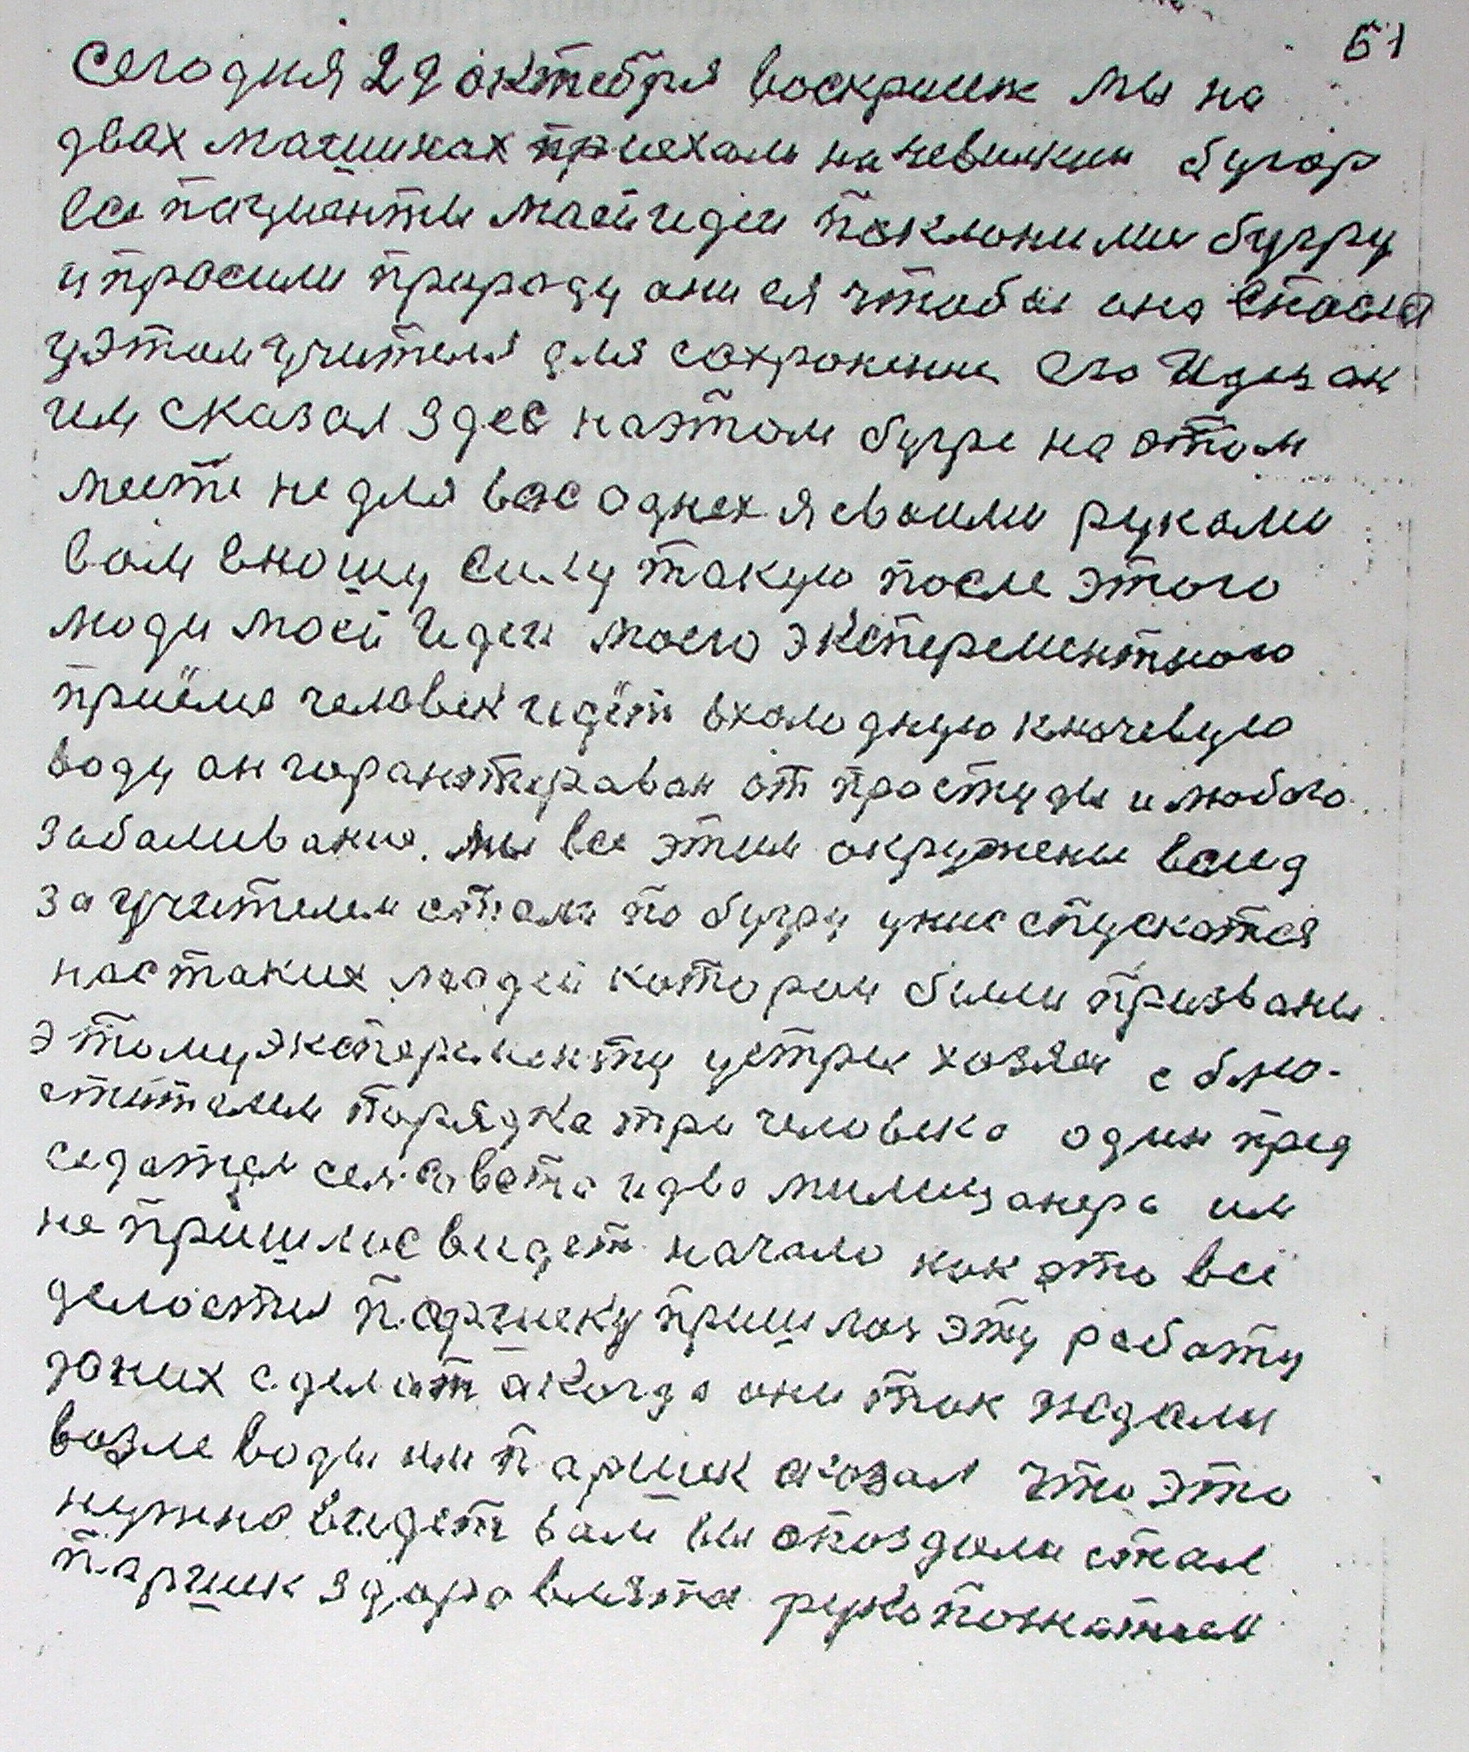 51
Сегодня 29 октебря воскринж мы на
двах машинах приехали на чевилкин бугор
все пациенты маей идеи поклонимы бугру
и просили природу они ея чтобы она спасла
у этом учителя для сохронение его Идеи он
им сказал здес на этом бугре на этом
месте не для вас однех я своими руками
вам вношу силу такую после этого
люди моей Идеи моего эксперементного
приёма человек идёт в халодную ключевую
воду он горантираван от простуды и любого
забаливание. мы все этим окружены вслид
за учителем стали по бугру унис спускатся
нас таких людей которым были призваны
этому эксперементу устрел хозяеи с блю-
стителем порядка три человека один пред
седател сел.совета и два милиционера им
не пришлос видет начало как это всё
делается паршеку пришлос эту работу
за них сделат а когда они так ждали
возле воды им паршек сказал что это
нужно видет вам вы опоздали стал
паршек здаровлятся рукопожатием